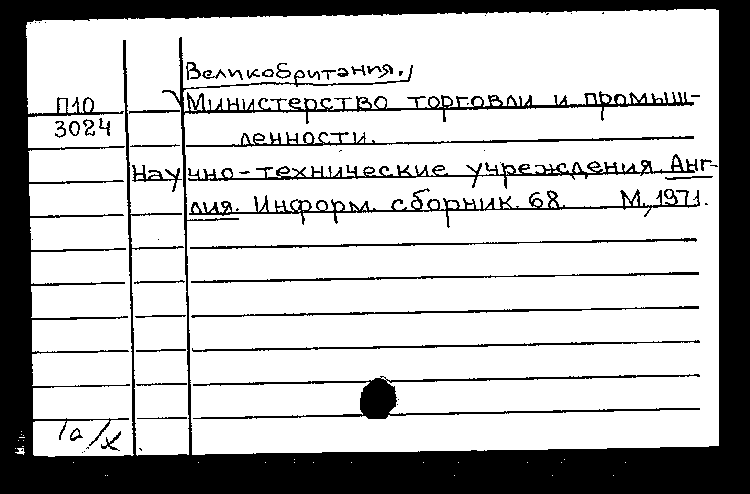 Великобритания./
П10 Министерство торговли и промыш-
3024 ленности.
Научно-технические учреждения Анг-
лия. Информ. сборник. 68. М., 1971.
1а/х